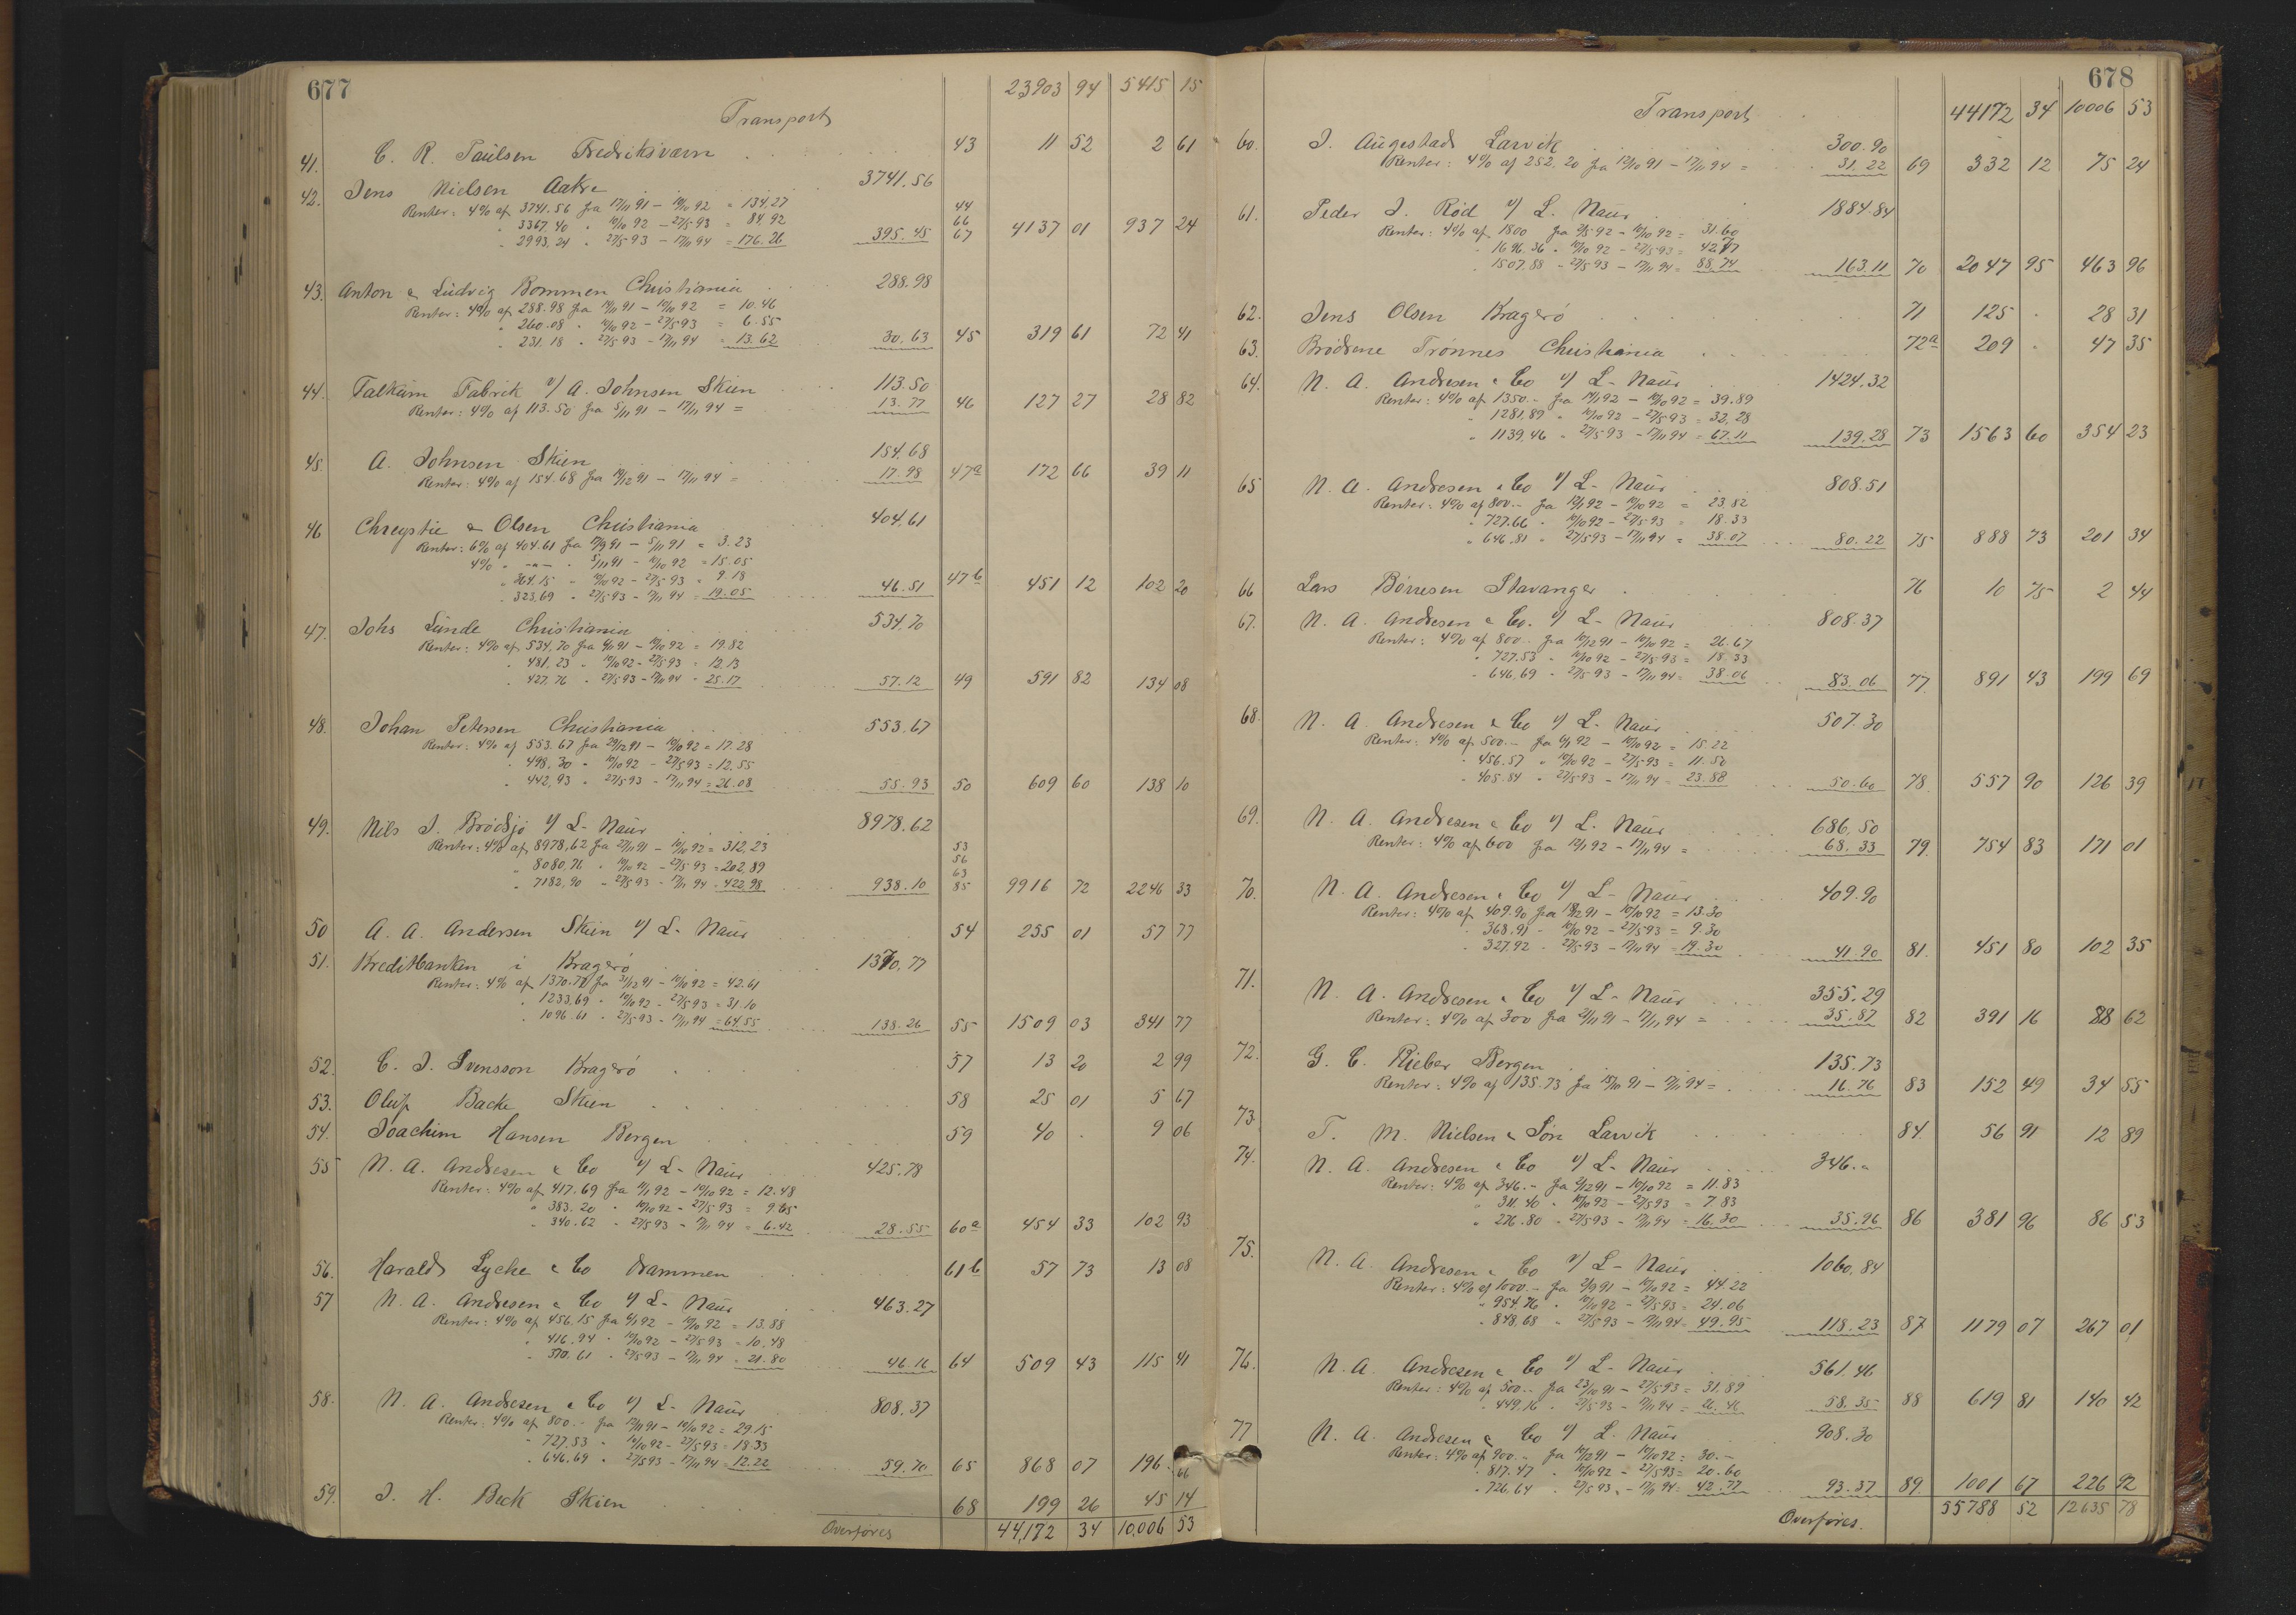 677
23903 94 5415 15
Transport
41. C. R. Paulsen Fredriksværn 43 11 52 2 61
42. Jens Nielsen Aakre 3741.56
Renter: 4% af 3741.56 fra 17/11 91 – 10/10 92 = 134,27 44
" 3367.40 " 10/10 92 – 27/5 93 = 84.92 66
" 2993,24 " 27/5 93 – 17/11 94 = 176.26 395.45 67 4137 01 937 24
43. Anton & Ludvig Bommen Christiania 288.98
Renter: 4% af 288.98 fra 14/11 91 – 10/10 92 = 10.46
" 260.08 " 10/10 92 – 27/5 93 = 6.55
" 231.18 " 27/5 93 – 17/11 94 = 13.62 30,63 45 319 61 72 41
44. Talkum Fabrik v/ A. Johnsen Skien 113.50
Renter: 4% af 113.50 fra 5/11 91 – 17/11 94 = 13.77 46 127 27 28 82
45 A. Johnsen Skien 154.68
Renter: 4% af 154.68 fra 19/12 91 – 17/11 94 = 17.98 47a 172 66 39 11
46 Chrystie & Olsen Christiania 404,61
Renter: 6% af 404.61 fra 17/9 91 – 5/11 91 = 3.23
4% " –"– " 5/11 91 – 10/10 92 = 15.05
" 364.15 " 10/10 92 – 27/5 93 = 9.18
" 323,69 " 27/5 93 – 17/11 94 = 19.05 46.51 47b 451 12 102 20
47. Johs Lunde Christiania 534,70
Renter: 4% af 534,70 fra 6/11 91 – 10/10 92 = 19.82
" 481,23 " 10/10 92 – 27/5 93 = 12.13
" 427.76 " 27/5 93 – 17/11 94 = 25.17 57.12 49 591 82 134 08
48. Johan Petersen Christiania 553.67
Renter: 4% af 553.67 fra 29/12 91 – 10/10 92 = 17.28
" 498,30 " 10/10 92 – 27/5 93 = 12.55
" 442,93 " 27/5 93 – 17/11 94 = 26.08 55.93 50 609 60 138 10
49. Nils J. Brødsjø v/ L. Naur 8978.62
Renter: 4% af 8978,62 fra 27/11 91 – 10/10 92 = 312,23 53
" 8080,76 " 10/10 92 – 27/5 93 = 202,89 56 63
" 7182,90 " 27/5 93 – 17/11 94 = 422,98 938.10 85 9916 72 2246 33
50 A. A. Andersen Skien v/ L. Naur 54 255 01 57 77
51. Kreditbanken i Kragerø 1370,77
Renter: 4% af 1370.77 fra 31/12 91 – 10/10 92 = 42.61
" 1233.69 " 10/10 92 – 27/5 93 = 31.10
" 1096.61 " 27/5 93 – 17/11 94 = 64.55 138.26 55 1509 03 341 77
52. C. J. Svensson Kragerø 57 13 20 2 99
53. Oluf Backe Skien 58 25 01 5 67
54. Joachim Hansen Bergen 59 40 . 9 06
55 N. A. Andresen & Co v/ L. Naur 425.78
Renter: 4% af 417.69 fra 11/1 92 – 10/10 92 = 12.48
" 383.20 " 10/10 92 – 27/5 93 = 9.65
" 340.62 " 27/5 93 – 17/11 94 = 6.42 28.55 60a 454 33 102 93
56. Harald Lyche & Co Drammen 61b 57 73 13 08
57 N. A. Andresen & Co v/ L. Naur 463.27
Renter: 4% af 456.15 fra 6/1 92 – 10/10 92 = 13.88
" 416.94 " 10/10 92 – 27/5 93 = 10.48
" 370.61 " 27/5 93 – 17/11 94 = 21.80 46.16 64 509 43 115 41
58. N. A. Andresen & Co v/ L. Naur 808,37
Renter: 4% af 800.– fra 12/11 91 – 10/10 92 = 29.15
" 727.53 " 10/10 92 – 27/5 93 = 18.33
" 646.69 " 27/5 93 – 17/11 94 = 12.22 59.70 65 868 07 196. 66
59. J. H. Beck Skien 68 199 26 45 14
Overføres 44,172 34 10,006 53
678
Transport 44172 34 10006 53
60. J. Augestad Larvik 300.90
Renter: 4% af 252.20 fra 12/10 91 – 17/11 94 = 31.22 69 332 12 75 24
61. Peder J. Rød v/ L. Naur 1884.84
Renter: 4% af 1800 fra 2/5 92 – 10/10 92 = 31.60
" 1696.36 " 10/10 92 – 27/5 93 = 42.77
" 1507.88 – 27/5 93 – 17/11 94 = 88.74 163.11 70 2047 95 463 96
62. Jens Olsen Kragerø 71 125 . 28 31
63. Brødrene Trønnes Christiania 72a 209 . 47 35
64. N. A. Andresen & Co v/ L. Naur 1424.32
Renter: 4% af 1350.– fra 14/1 92 – 10/10 92 = 39.89
" 1281,89 " 10/10 92 – 27/5 93 = 32,28
" 1139.46 " 27/5 93 – 17/11 94 = 67.11 139.28 73 1563 60 354 23
65 N. A. Andresen & Co v/ L. Naur 808.51
Renter: 4% af 800.– fra 12/1 92 – 10/10 92 = 23,82
" 727.66 " 10/10 92 – 27/5 93 = 18.33
" 646.81 " 27/5 93 – 17/11 94 = 38.07 80.22 75 888 73 201 34
66 Lars Børresen Stavanger 76 10 75 2 44
67. N. A. Andresen & Co. v/ L. Naur 808.37
Renter: 4% af 800.– fra 10/12 91 – 10/10 92 = 26.67
" 727.53 " 10/10 92 – 27/5 93 = 18.33
" 646,69 " 27/5 93 – 17/11 94 = 38.06 83.06 77. 891 43 199 69
68. N. A. Andresen & Co v/ L. Naur 507.30
Renter: 4% af 500.– fra 6/1 92 – 10/10 92 = 15.22
" 456.57 " 10/10 92 – 27/5 93 = 11.50
" 405.84 " 27/5 93 – 17/11 94 = 23.88 50.60 78. 557 90 126 39
69. N. A. Andresen & Co v/ L. Naur 686,50
Renter: 4% af 600 fra 12/1 92 – 17/11 94 = 68.33 79. 754 83 171 01
70. N. A. Andresen & Co v/ L. Naur 409.90
Renter: 4% af 409.90 fra 18/12 91 – 10/10 92 = 13.30
" 368,91 – 10/10 92 – 27/5 93 = 9.30
" 327.92 – 27/5 93 – 17/11 94 = 19.30 41.90 81. 451 80 102 35
71. N. A. Andresen & Co v/ L. Naur 355.29
Renter: 4% af 300 fra 21/11 91 – 17/11 94 = 35.87 82 391 16 88 62
72. G. C. Rieber Bergen 135.73
Renter: 4% af 135.73 fra 15/10 91 – 17/11 94 = 16.76 83 152 49 34 55
73 T. M. Nielsen & Søn Larvik 84. 56 91 12 89
74. N. A. Andresen & Co v/ L. Naur 346.–
Renter: 4% af 346.– fra 2/12 91 – 10/10 92 = 11.83
" 311.40 " 10/10 92 – 27/5 93 = 7.83
" 276.80 " 27/5 93 – 17/11 94 = 16.30 35.96 86 381 96 86 53
75. N. A. Andresen & Co v/ L. Naur 1060,84
Renter: 4% af 1000.– fra 2/9 91 – 10/10 92 = 44.22
" 954.76 " 10/10 92 – 27/5 93 = 24.06
" 848,68 " 27/5 93 – 17/11 94 = 49.95 118.23 87 1179 07 267 01
76. N. A. Andresen & Co v/ L. Naur 561.46
Renter: 4% af 500.– fra 23/10 91 – 27/5 93 = 31.89
" 449.16 " 27/5 93 – 17/11 94 = 26.46 58.35 88 619 81 140 42
77 N. A. Andresen & Co v/ L. Naur 908.30
Renter: 4% af 900.– fra 10/12 91 – 10/10 92 = 30.–
" 817.47 " 10/10 92 – 27/5 93 = 20.60
" 726.64 " 27/5 93 – 17/11 94 = 42.77 93.37 89. 1001 67 226 92
Overføres. 55788 52 12635 78